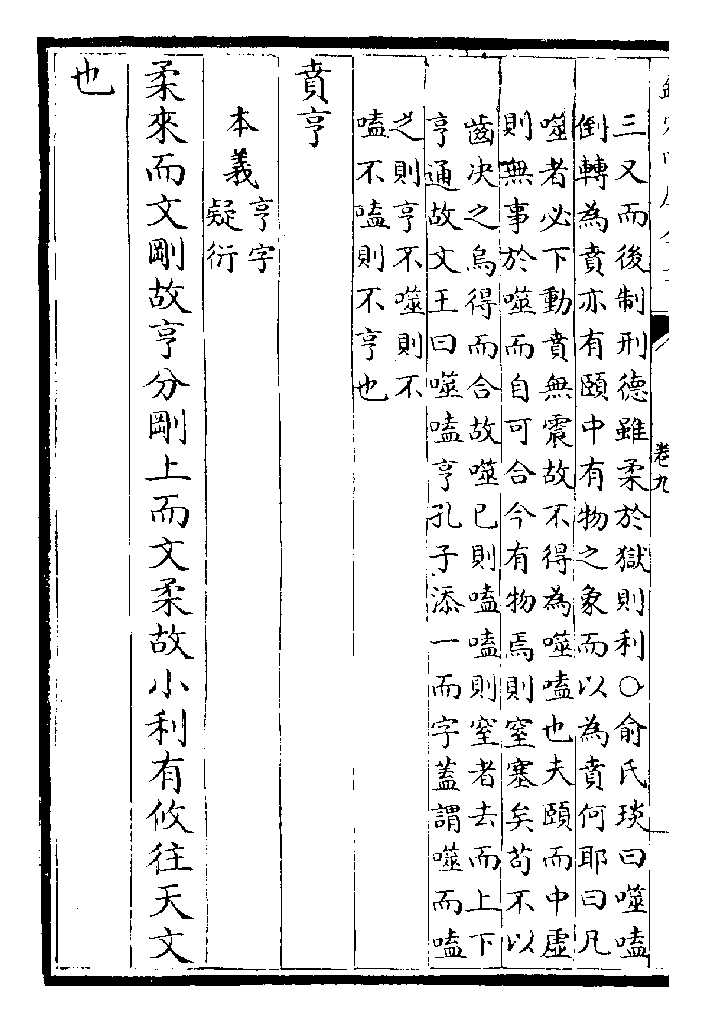 卷九
三又而後制刑德雖柔於獄則利○俞氏琰曰噬嗑
倒轉為賁亦有頤中有物之象而以為賁何耶曰凡
噬者必下動賁無震故不得為噬嗑也夫頤而中虛
則無事於噬而自可合今有物焉則窒塞矣苟不以
齒决之烏得而合故噬已則嗑嗑則窒者去而上下
亨通故文王曰噬嗑亨孔子添一而字蓋謂噬而嗑
之則亨不噬則不
嗑不嗑則不亨也
賁亨
本義亨字
疑衍
柔來而文剛故亨分剛上而文柔故小利有攸往天文
也